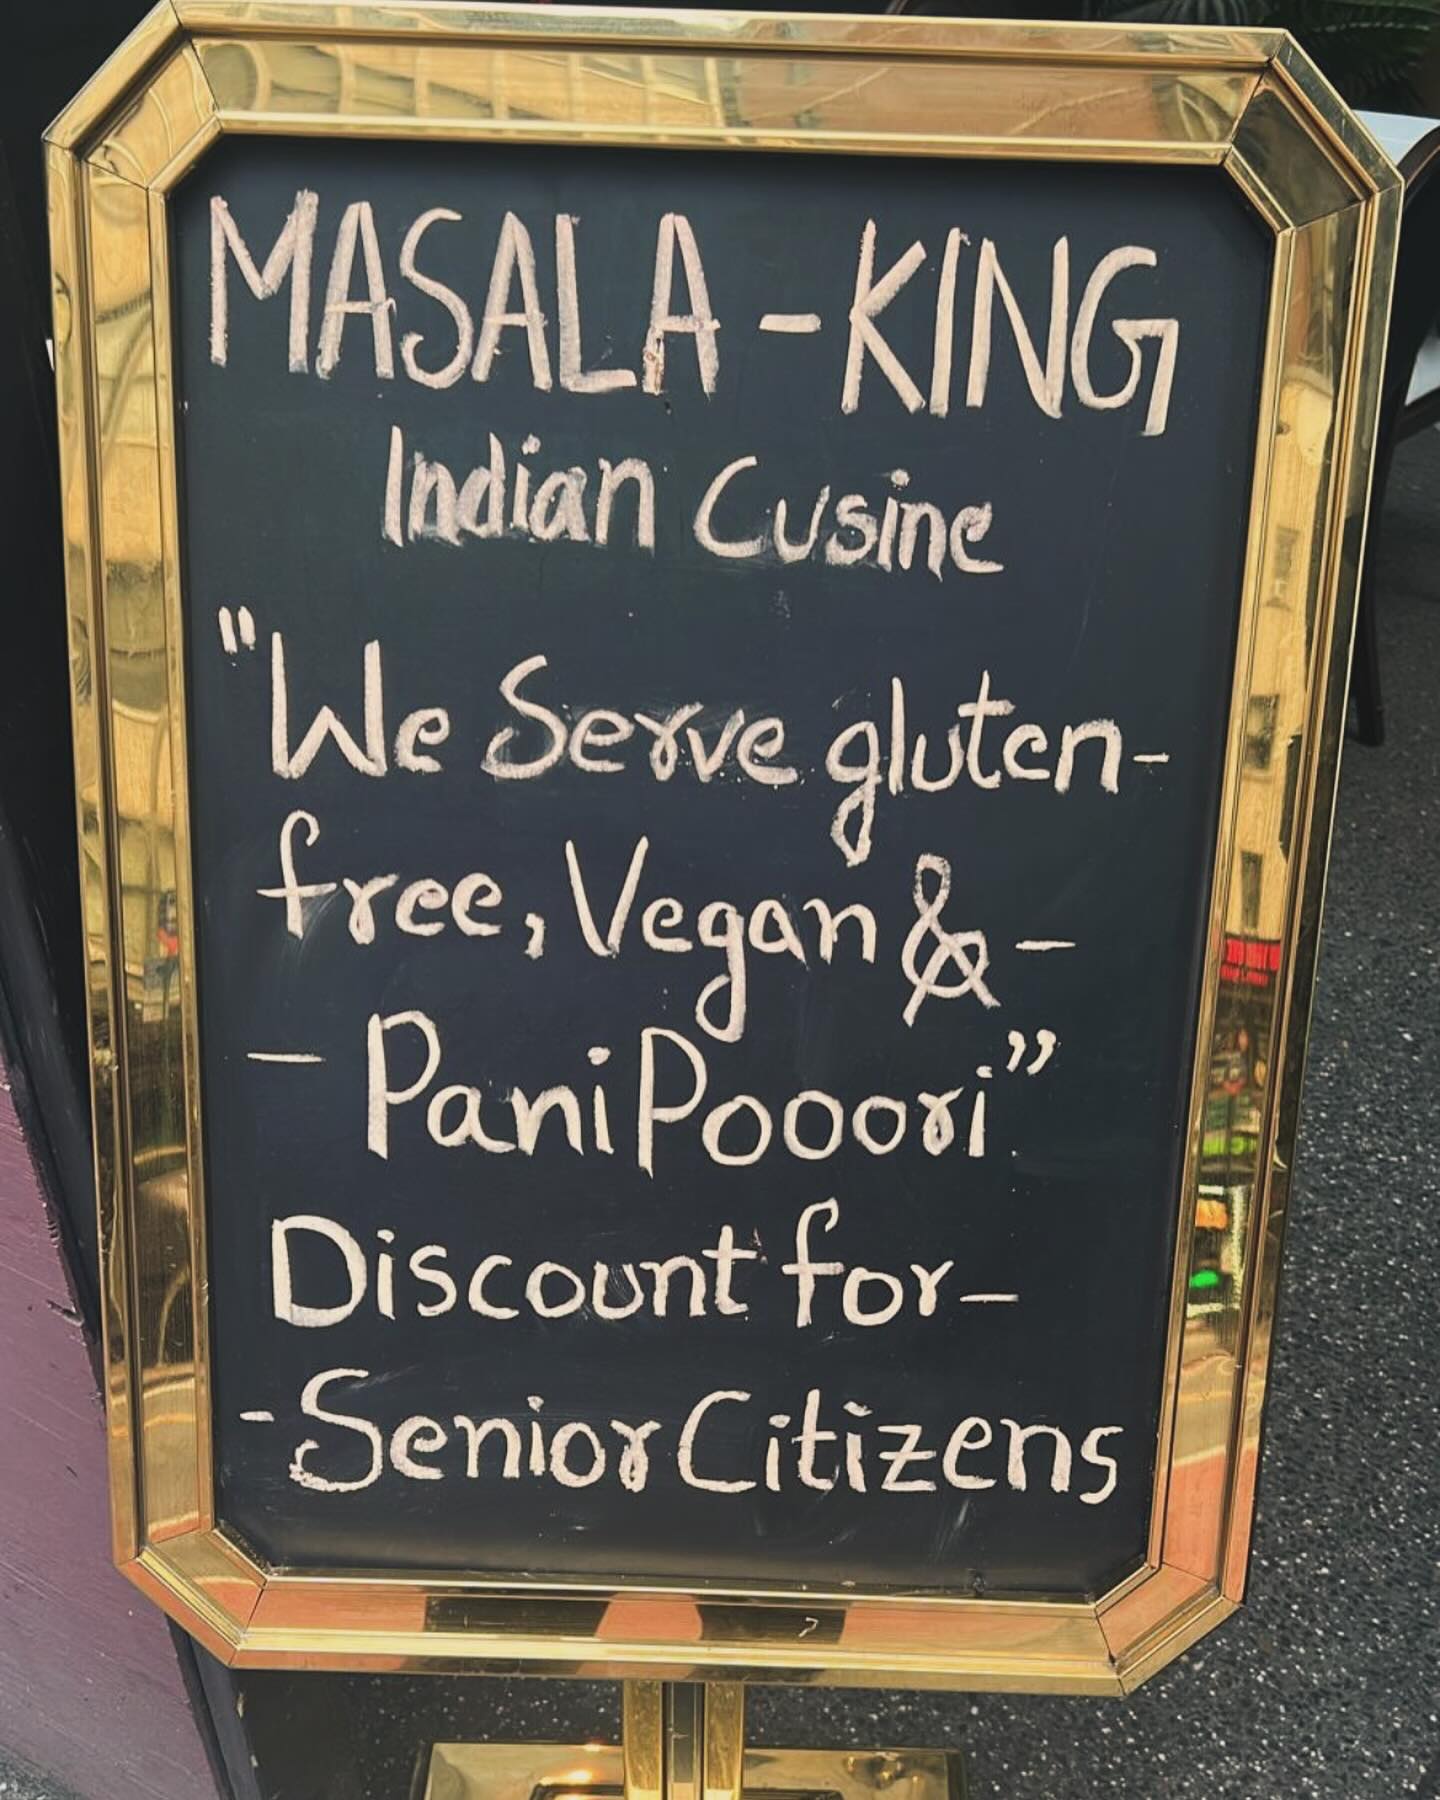 MASALA - KING
Indian Cusine
"We Serve gluten-
free, Vegan & -
- Pani Pooori"
Discount for -
- Senior Citizens